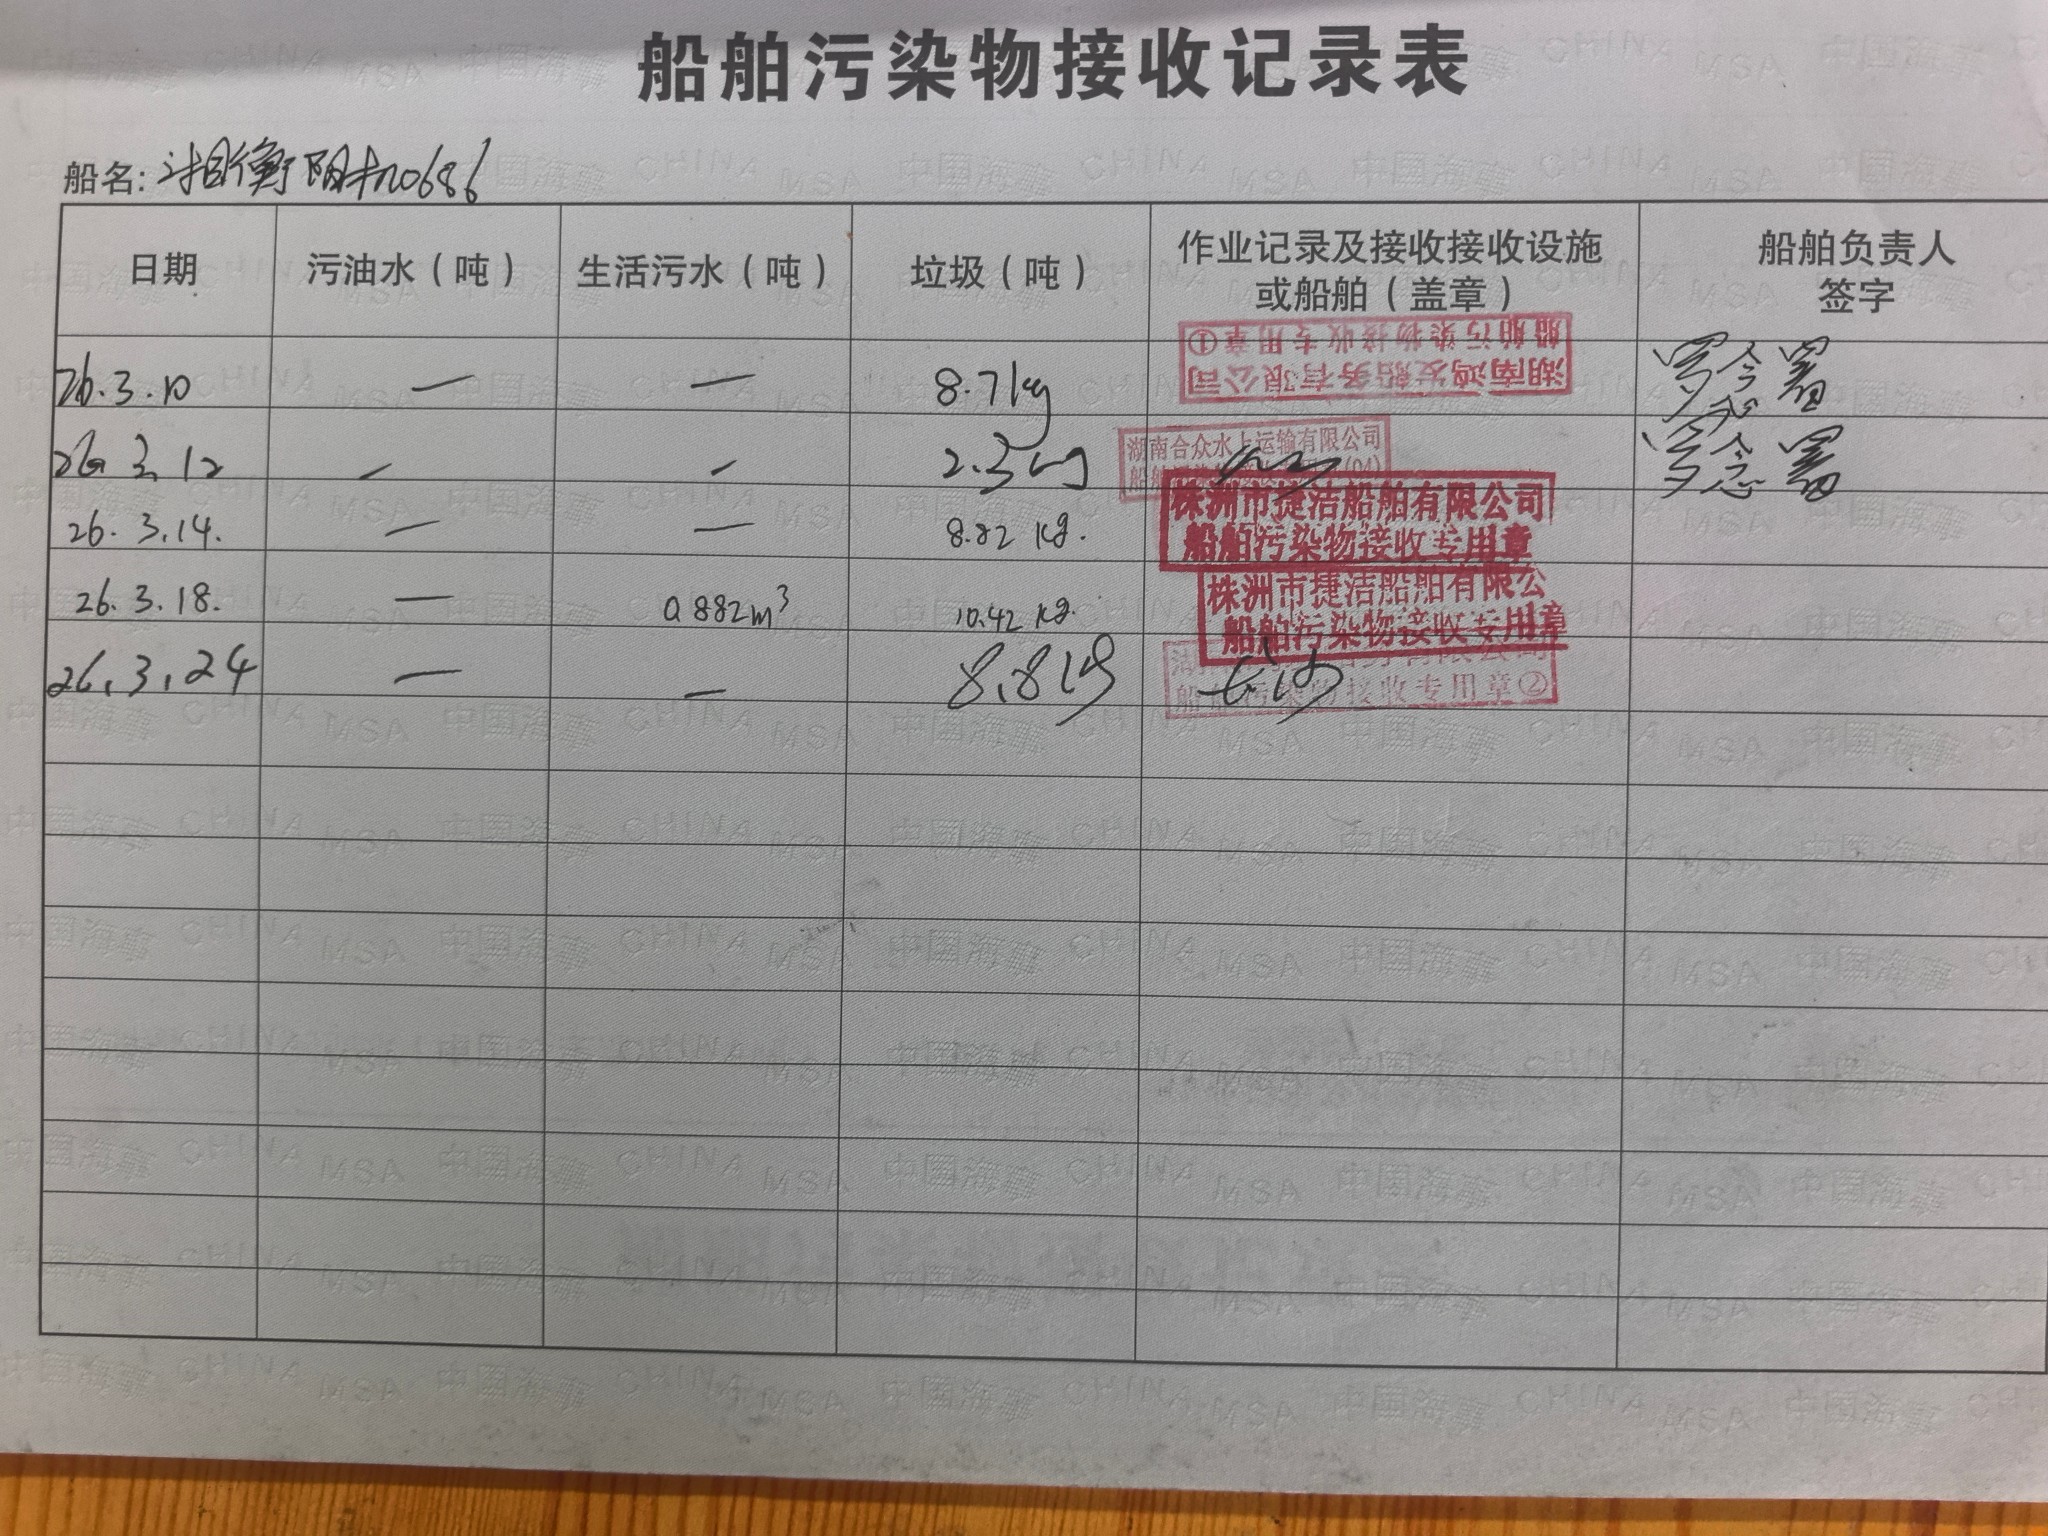 船舶污染物接收记录表
船名: 湘衡阳机0686
日期 污油水（吨） 生活污水（吨） 垃圾（吨） 作业记录及接收接收设施或船舶（盖章） 船舶负责人签字
26.3.10 — — 8.7kg
湖南鸿发船务有限公司
船舶污染物接收专用章①
26.3.12 — — 2.3kg
湖南合众水上运输有限公司
26.3.14. — — 8.82 kg.
株洲市捷洁船舶有限公司
船舶污染物接收专用章
26.3.18. — 0.882m³ 10.42 kg.
株洲市捷洁船舶有限公
船舶污染物接收专用章
26.3.24 — — 8.8kg 长沙
船舶污染物接收专用章②
中国海事 CHINA MSA